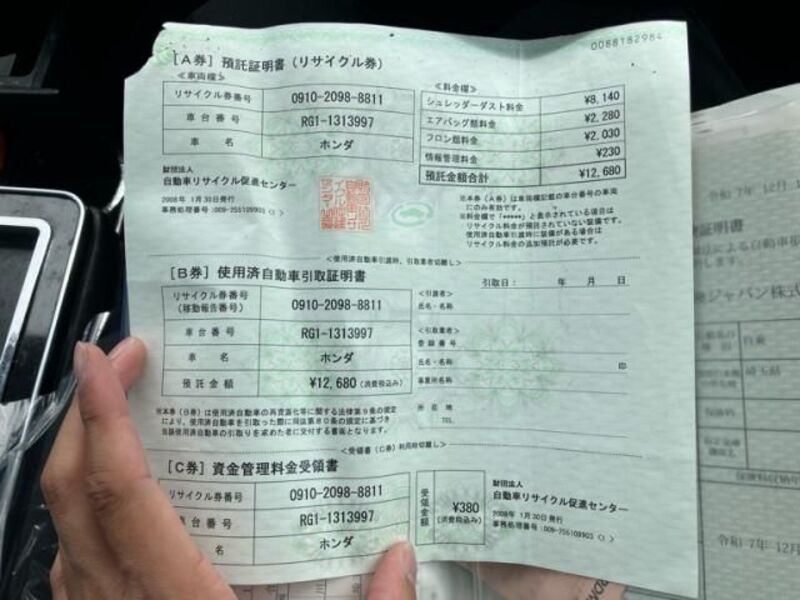 0088182984
[A券] 預託証明書 (リサイクル券)
<車両欄>
リサイクル券番号 0910-2098-8811
車台番号 RG1-1313997
車名 ホンダ
<料金欄>
シュレッダーダスト料金 ¥8,140
エアバッグ類料金 ¥2,280
フロン類料金 ¥2,030
情報管理料金 ¥230
預託金額合計 ¥12,680
財団法人
自動車リサイクル促進センター
2008年 1月30日発行
事務処理番号:009-755109903
※本券(A券)は車両欄記載の車台番号の車両
にのみ有効です。
※料金欄で「*****」と表示されている項目は
リサイクル料金が預託されていない装備です。
使用済自動車引渡時に装備がある場合は
リサイクル料金の追加預託が必要です。
<使用済自動車引渡時、引取業者切離し>
[B券] 使用済自動車引取証明書
引取日: 年 月 日
リサイクル券番号
(移動報告番号) 0910-2098-8811
車台番号 RG1-1313997
車名 ホンダ
預託金額 ¥12,680 (消費税込み)
<引渡者>
氏名・名称
<引取業者>
登録番号
氏名・名称 印
事業所名称
所在地
TEL
※本券(B券)は使用済自動車の再資源化等に関する法律第9条の規定
により、使用済自動車を引取った際に同法第80条の規定に基づき
当該使用済自動車の引取りを求めた者に交付する書面となります。
<受領書(C券)利用時切離し>
[C券] 資金管理料金受領書
リサイクル券番号 0910-2098-8811
車台番号 RG1-1313997
車名 ホンダ
受領金額 ¥380
(消費税込み)
財団法人
自動車リサイクル促進センター
2008年 1月30日発行
事務処理番号:009-755109903
令和 7年 12月 1
証明書
ジャパン株式
自乗
埼玉県
令和 7年 12月